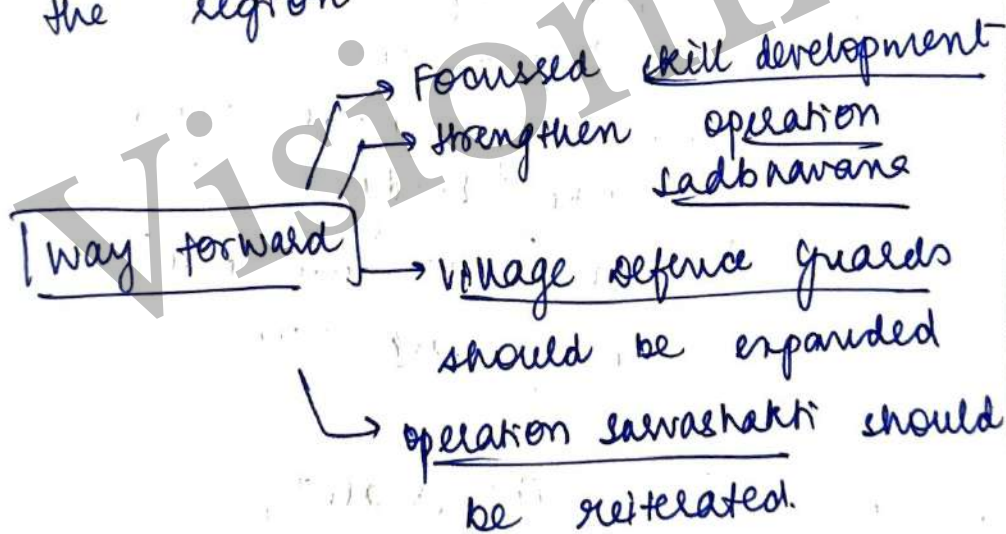 the region
→ Focussed skill development
→ strengthen operation
sadbhavana
way forward
→ village defence guards
should be expanded
→ operation sarvashakti should
be reiterated.
Vision